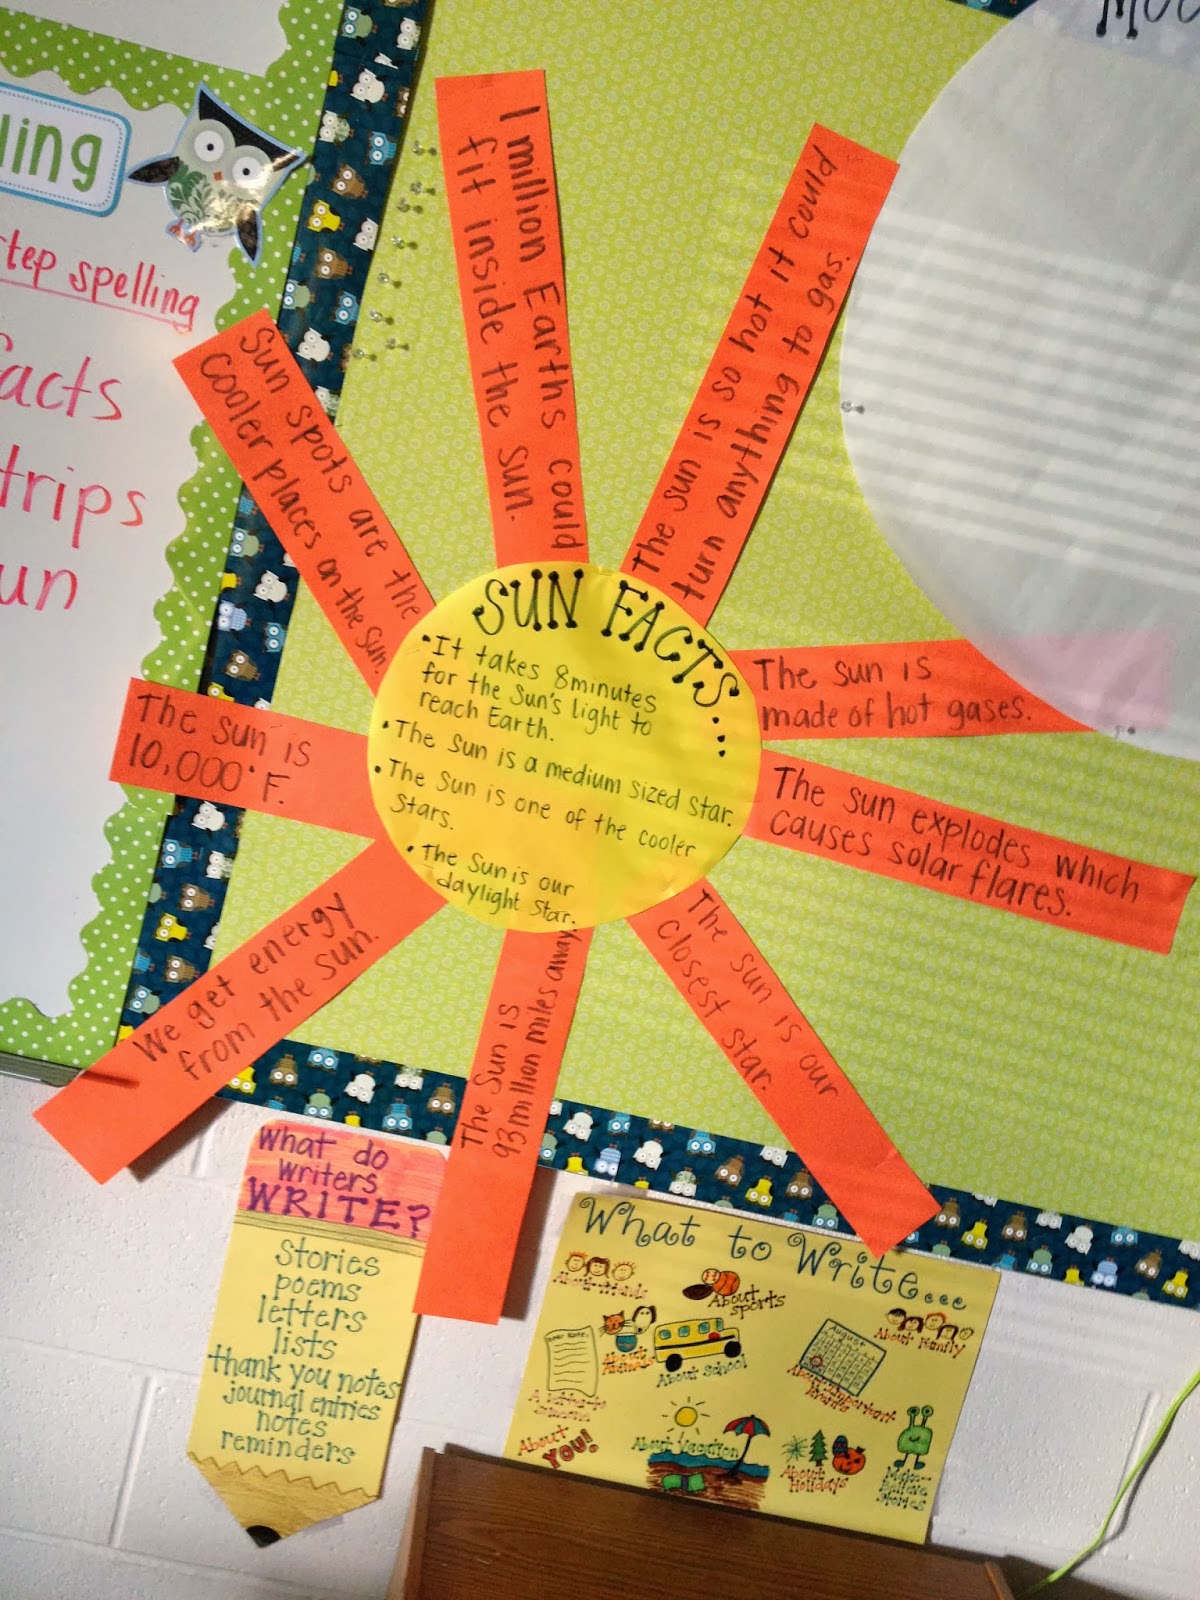 ling
step spelling
facts
trips
un
SUN FACTS...
• It takes 8 minutes
for the Sun's light to
reach Earth.
• The Sun is a medium sized star.
• The Sun is one of the cooler
stars.
• The Sun is our
daylight star.
1 million Earths could
fit inside the sun.
The sun is so hot it could
turn anything to gas.
The sun is
made of hot gases.
The sun explodes which
causes solar flares.
The sun is our
closest star.
The Sun is
93 million miles away.
We get energy
from the sun.
The sun is
10,000°F.
Sun spots are the
cooler places on the sun.
What do
writers
WRITE?
Stories
poems
letters
lists
thank you notes
journal entries
notes
reminders
What to Write...
About friends
About
sports
About Family
About
Animals
About school
August
About important
Events
A letter to
someone
About
YOU!
About Vacation
About
Holidays
Make-
Believe
Stories